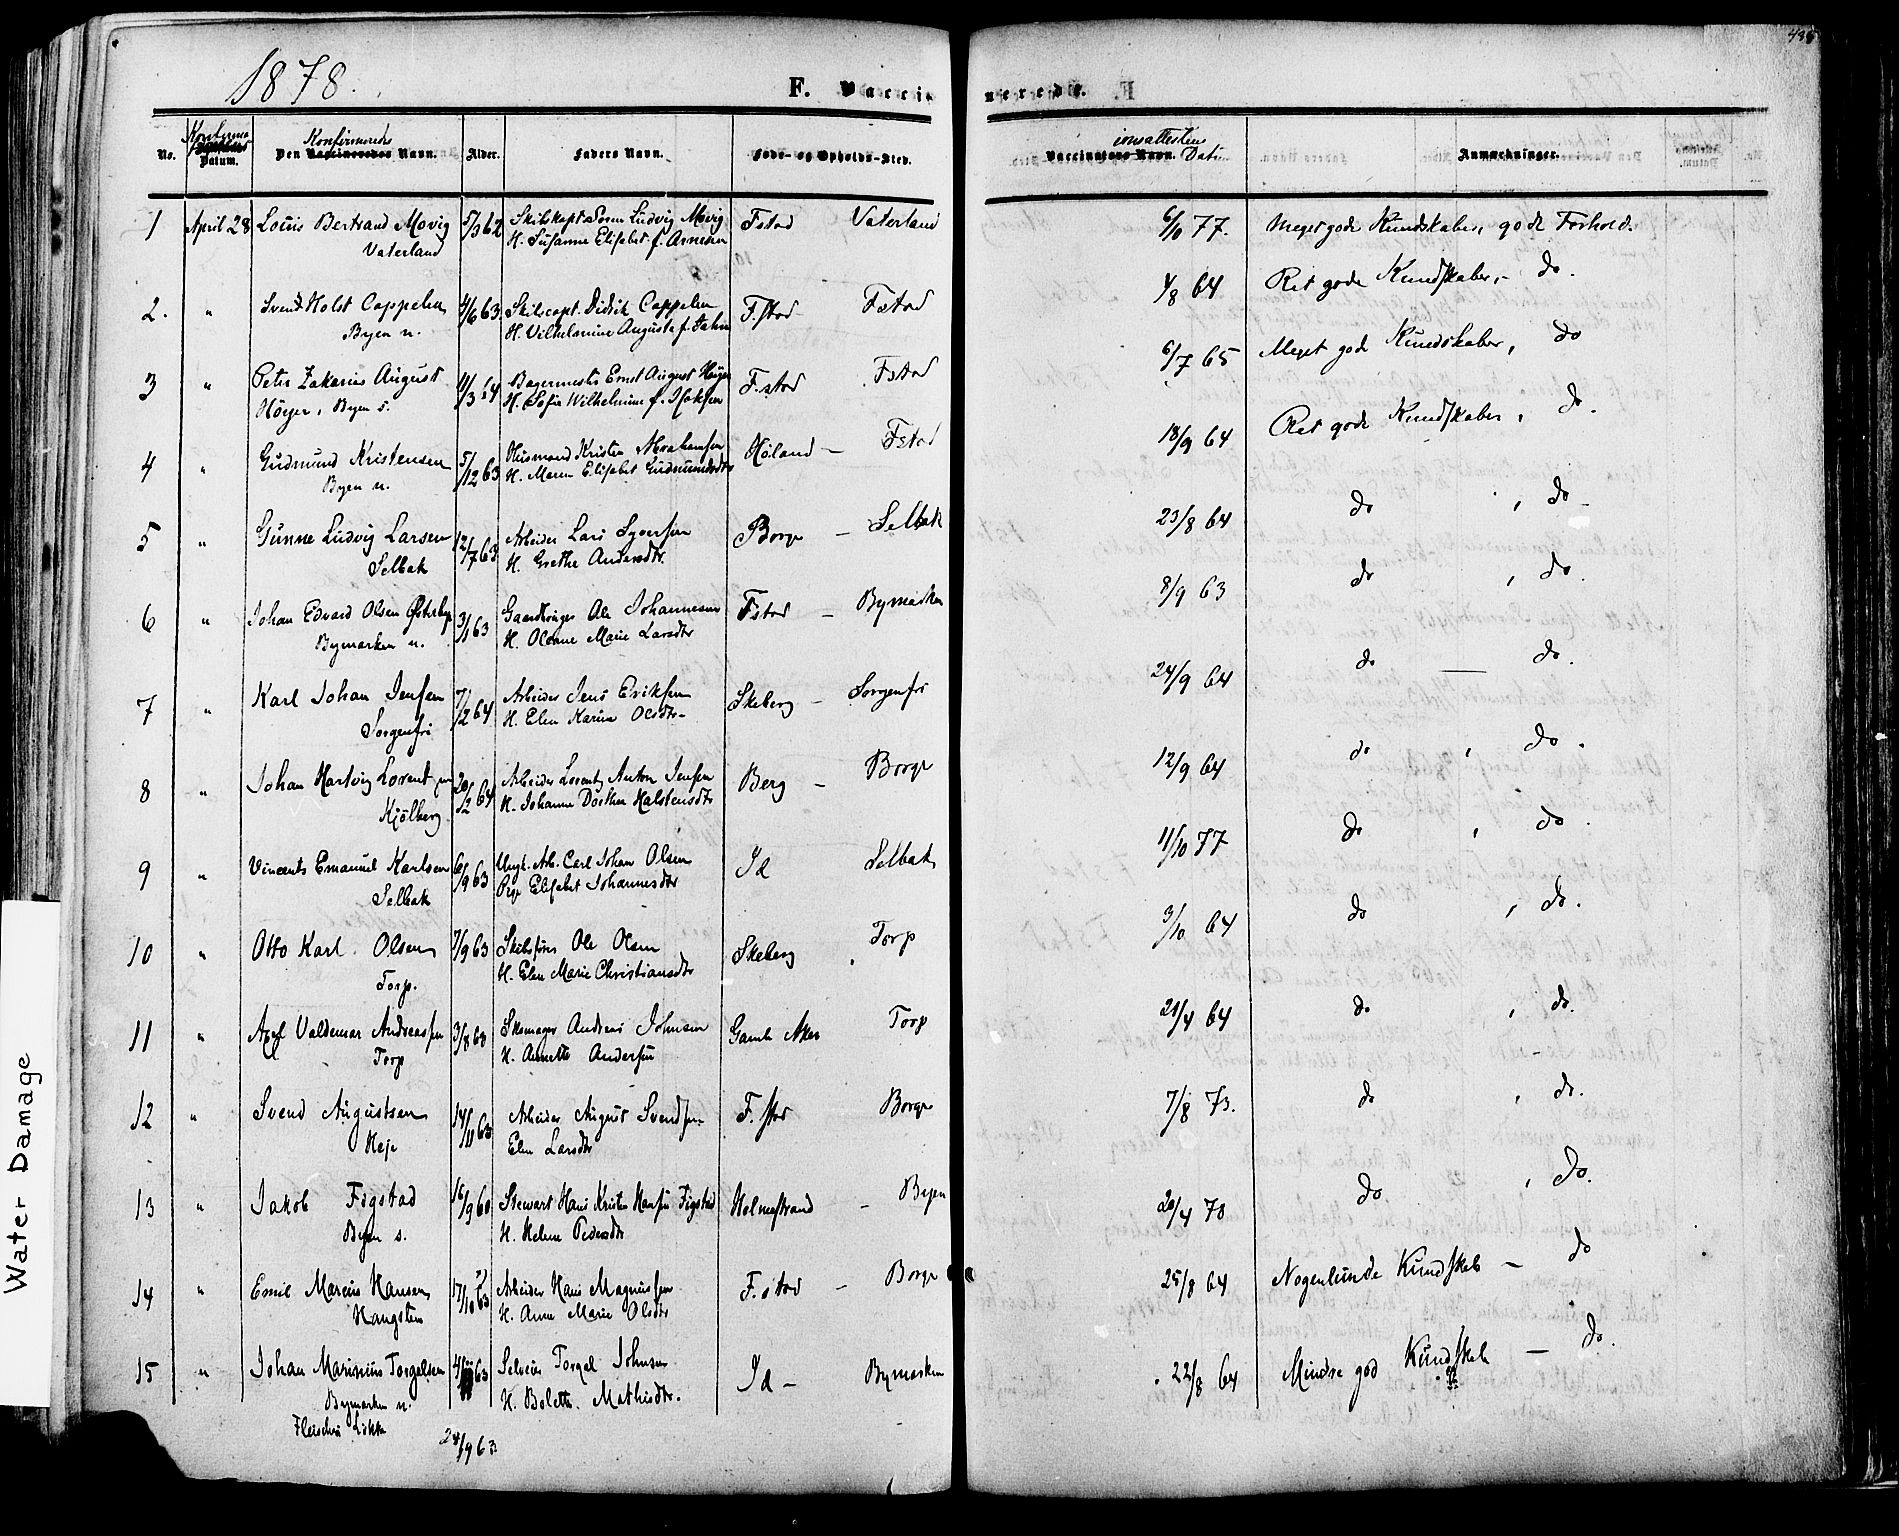 1878.
F. Vacci nerede.
No.
Konfirma
Datum.
Konfirmeredes
Den Vaccineredes Navn.
Alder.
Faders Navn.
Føde- og Opholds-Sted.
Vaccinators Navn.
Anmærkninger.
1 April 28 Louis Bertrand Movig 5/3 62 Skibskapt. Sören Ludvig Movig Fstad Vaterland 6/10 77. Meget gode Kundskaber, gode Forhold.
Vaterland H. Susanne Elisabet f. Arnesen
2. " Svend Holst Cappelen 4/6 63. Skibscapt. Didrik Cappelen F.stad Fstad 4/8 64 Ret gode Kundskaber, - do.
Byen n. H. Vilhelmine Augusta f.
3 " Peter Zakarias August Bagermester Ernst August Høyer F.stad Fstad 6/7 65 Meget gode Kundskaber, do
Höyer, Byen s. H. Sofie Wilhelmine f. Isaksen
4 " Gudmund Kristensen 5/12 63 Husmand Kristen Abrahamsen Høland - Fstad 18/9 64 Ret gode Kundskaber, do.
Byen n. H. Maren Elisabet Gudmundsdtr
5 " Gunne Ludvig Larsen 12/7 63 Arbeider Lars Syversen Borge - Selbak 23/8 64 do , do
Selbak H. Grethe Andersdtr.
6 " Johan Edvard Olsen 3/1 63 Ole Johannesen Fstad - Bymarken 8/9 63 do , do.
Bymarken n. H. Oleane Marie Larsdtr
7 " Karl Johan Jensen 7/2 64 Arbeider Jens Eriksen Skeberg - Sorgenfri 24/9 64 do — do.
Sorgenfri H. Elen Karine Olsdtr
8 " Johan Hartvig Lorentzen 20/2 64 Arbeider Lorentz Anton Jensen Berg - Borge 12/9 64 do , do.
Kjölberg H. Johanne Dorthea Halstensdtr
9 " Vincents Emanuel Karlsen 6/9 63 Ungk. Arb. Carl Johan Olsen Id Selbak 11/10 77 do , do.
Selbak Pige Elisabet Johannesdtr
10 " Otto Karl Olsen 7/9 63 Skibsförer Ole Olsen Skeberg Torp 3/10 64 do , do.
Torp. H. Elen Marie Christiansdtr
11 " Axel Valdemar Andreassen 3/8 63 Skomager Andreas Johnsen Gamle Aker Torp 21/4 64 do , do.
Torp H. Annette Andersen
12 " Svend Augustsen 14/11 63 Arbeider August Svendsen F.stad Borge 7/8 73. do , do.
Heje Elen Larsdtr
13 " Jakob Figstad 16/9 60 Stewart Hans Kristen Hansen Figstad Holmestrand - Byen 20/4 70 do , do.
Byen s. H. Helene Pedersdtr
14 " Emil Marius Hansen 17/10 63 Arbeider Hans Magnussen F.stad - Borge 25/8 64 Nogenlunde Kundskab — do
Hangsten H. Anne Marie Olsdtr
15 " Johan Marinius Torgelsen Selveier Torgel Johnsen Id - Bymarken 22/8 64 Mindre god Kundskab — do.
Bymarken n. H. Bolette Mathisdtr.
24/9 63
Water Damage